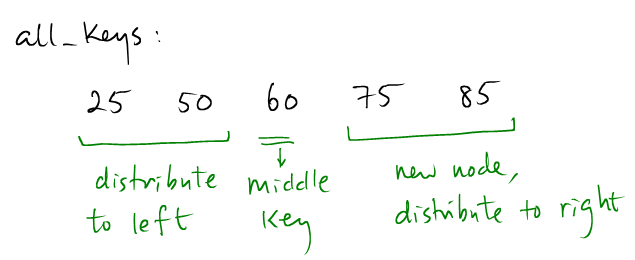 all_keys:
25 50 60 75 85
distribute to left
middle key
new node, distribute to right